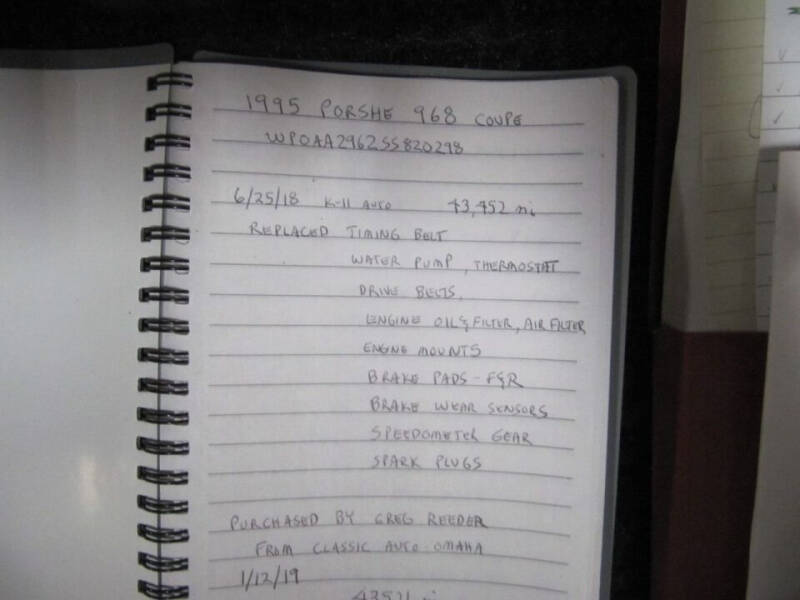 1995 PORSHE 968 COUPE
WPOAA2962SS820298
6/25/18 K-11 AUTO 43,452 mi
REPLACED TIMING BELT
WATER PUMP, THERMOSTAT
DRIVE BELTS,
ENGINE OIL & FILTER, AIR FILTER
ENGINE MOUNTS
BRAKE PADS - F&R
BRAKE WEAR SENSORS
SPEEDOMETER GEAR
SPARK PLUGS
PURCHASED BY GREG REEDER
FROM CLASSIC AUTO-OMAHA
1/12/19